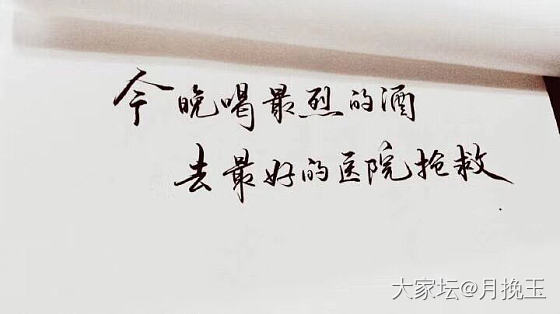 今晚喝最烈的酒
去最好的医院抢救
大家坛@月挽玉